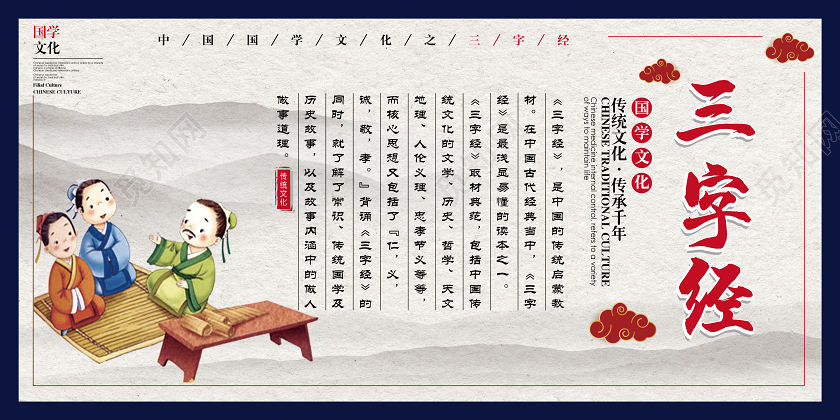 国学
文化
Filial Culture
CHINESE CULTURE
中/国/国/学/文/化/之/三/字/经
三字经
国学文化
传统文化·传承千年
CHINESE TRADITIONAL CULTURE
Chinese medicine internal control, refers to a variety
of ways to maintain life
《三字经》，是中国的传统启蒙教
材。在中国古代经典当中，《三字
经》是最浅显易懂的读本之一。
《三字经》取材典范，包括中国传
统文化的文学、历史、哲学、天文
地理、人伦义理、忠孝节义等等，
而核心思想又包括了『仁，义，
诚，敬，孝。』背诵《三字经》的
同时，就了解了常识、传统国学及
历史故事，以及故事内涵中的做人
做事道理。
传统文化